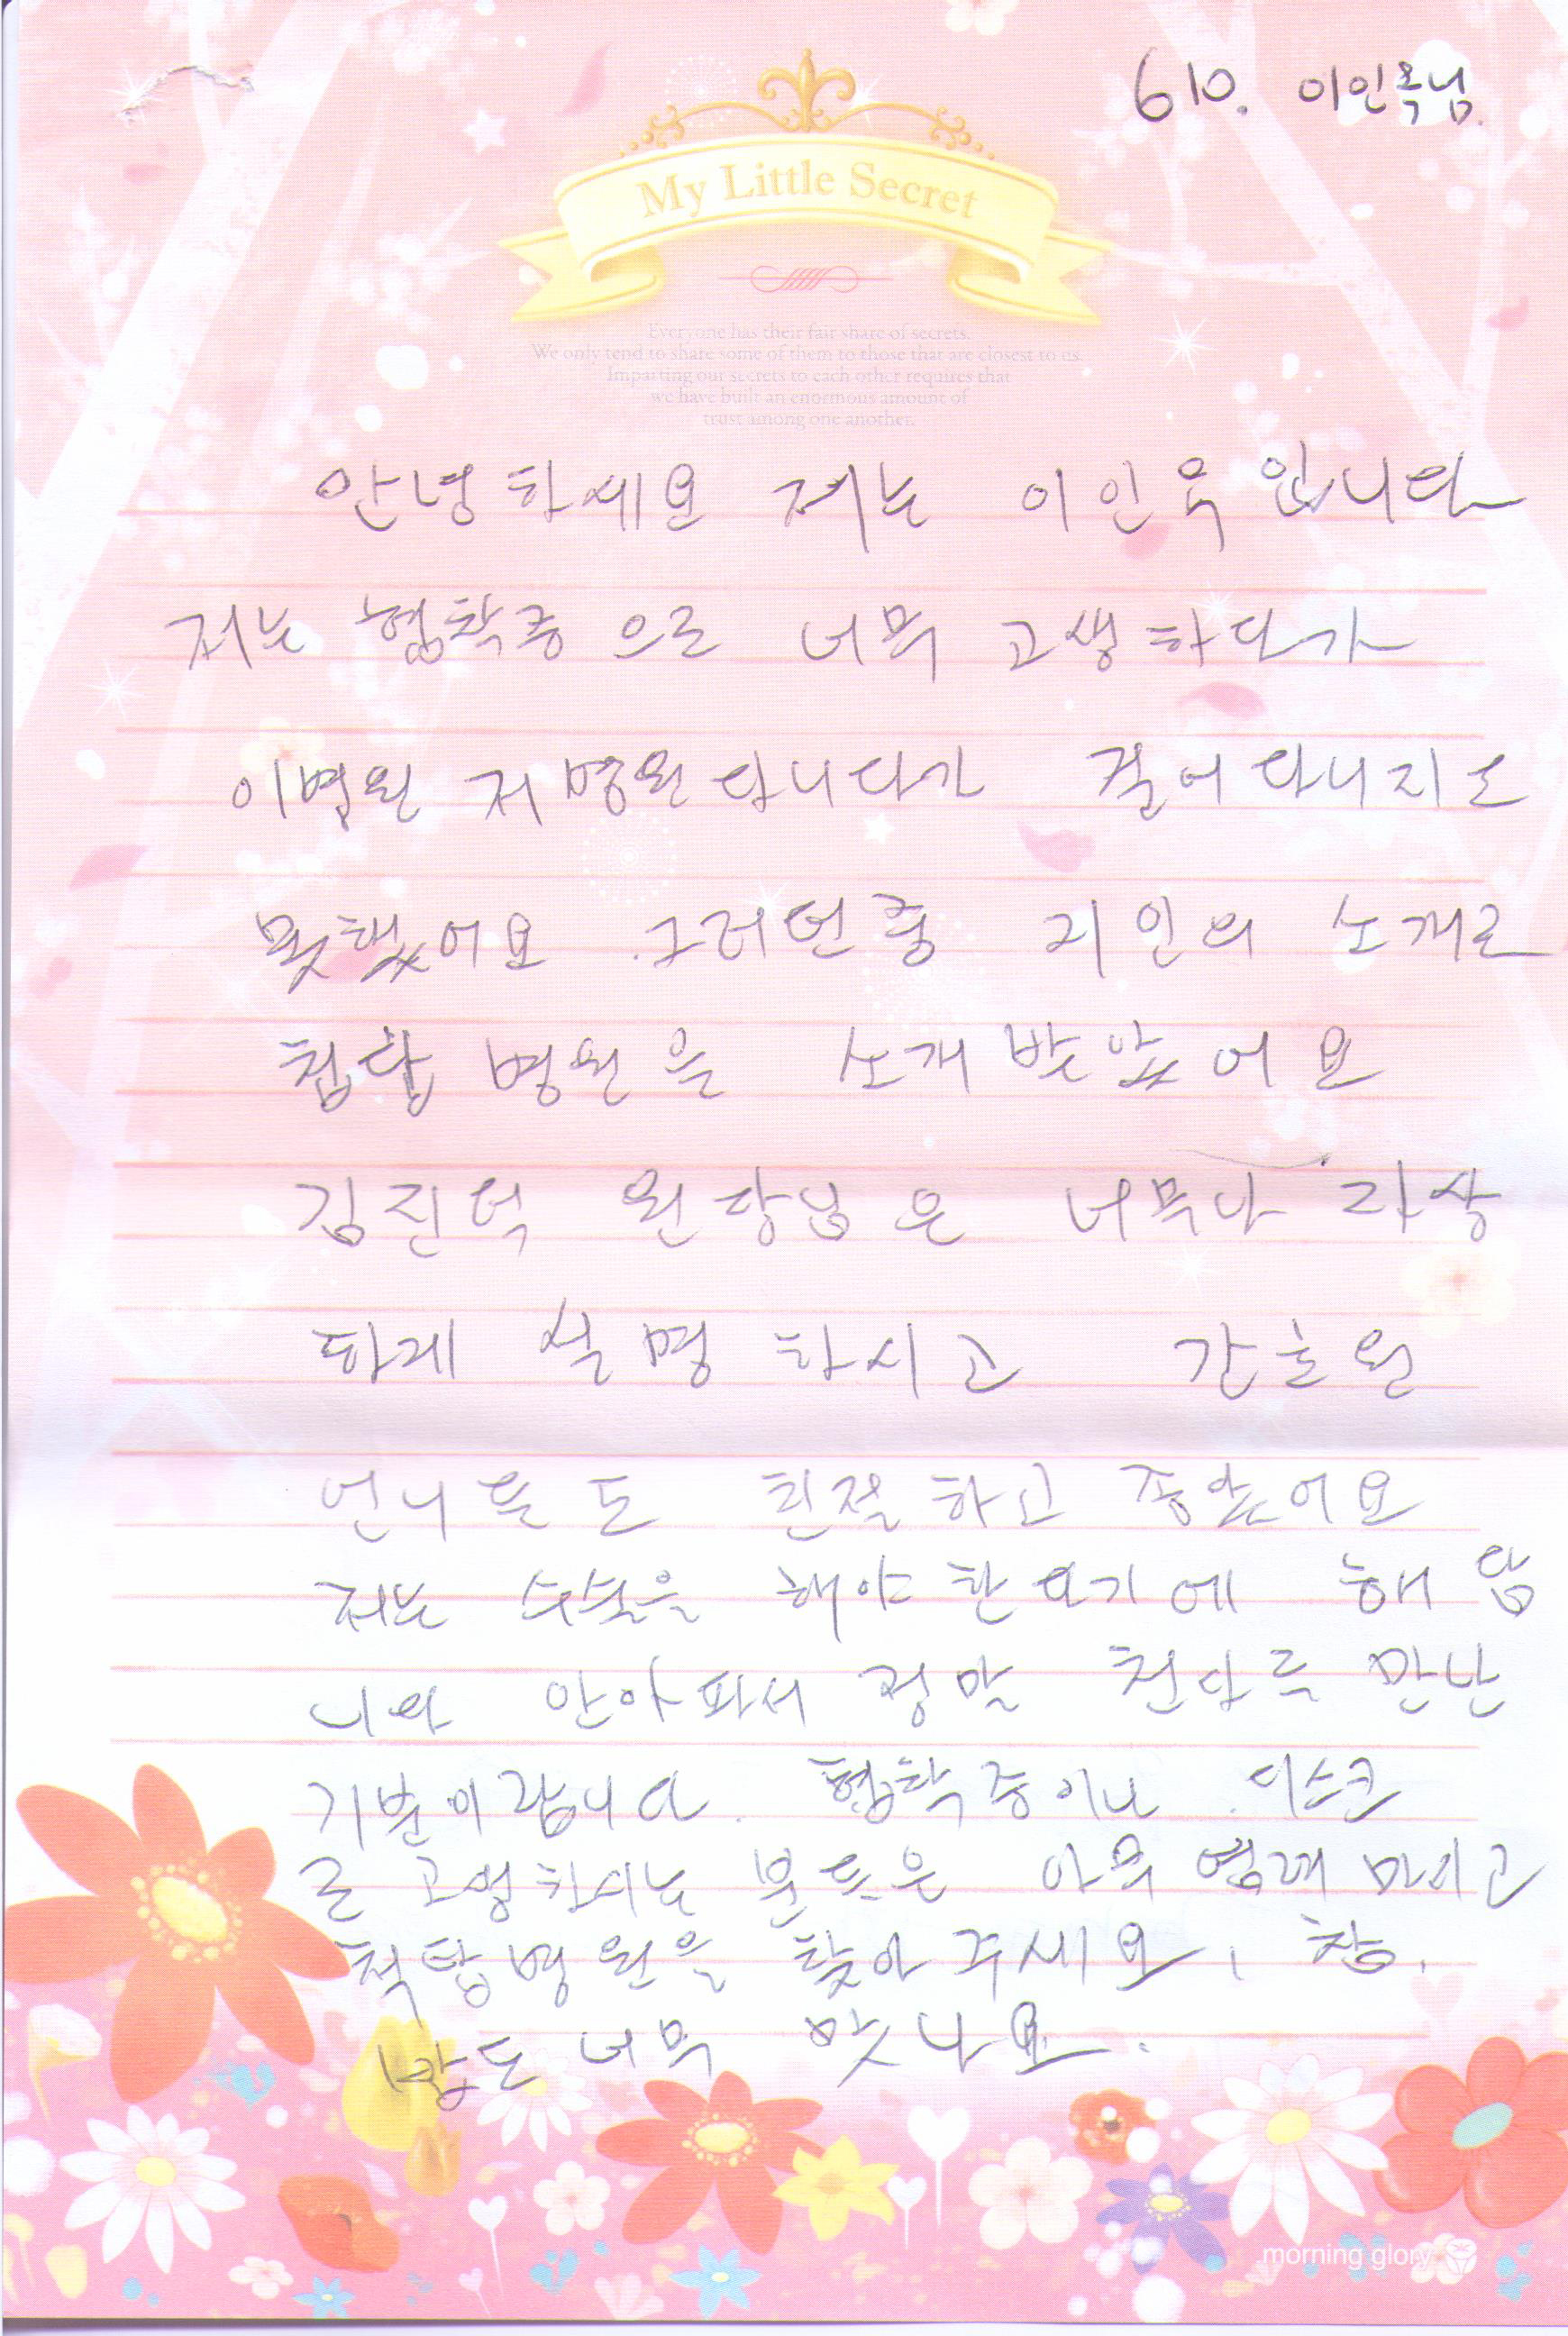 610. 이인옥님.
My Little Secret
Everyone has their fair share of secrets.
We only tend to share some of them to those that are closest to us.
Imparting our secrets to each other requires that
we have built an enormous amount of
trust among one another.
안녕하세요 저는 이인옥 입니다
저는 협착증 으로 너무 고생하다가
이병원 저병원 다니다가 걸어 다니지도
못했어요 그러던중 지인의 소개로
첨단 병원을 소개 받았어요
김진덕 원장님은 너무나 자상
하게 설명 하시고 간호원
언니들도 친절하고 좋았어요
저는 수술을 해야 한다기에 해답
니다 안아파서 정말 천다를 만난
기분이랍니다. 협착증이나 디스크
로 고생하시는 분들은 아무 염려 마시고
척탑병원을 찾아 주세요, 참.
밥도 너무 맛나요.
morning glory